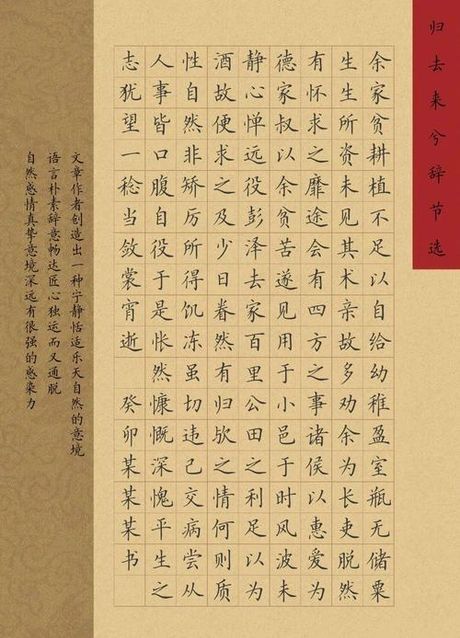 归去来兮辞节选
余家贫耕植不足以自给幼稚盈室瓶无储粟
生生所资未见其术亲故多劝余为长吏脱然
有怀求之靡途会有四方之事诸侯以惠爱为
德家叔以余贫苦遂见用于小邑于时风波未
静心惮远役彭泽去家百里公田之利足以为
酒故便求之及少日眷然有归欤之情何则质
性自然非矫厉所得饥冻虽切违己交病尝从
人事皆口腹自役于是怅然慷慨深愧平生之
志犹望一稔当敛裳宵逝 癸卯某某某书
文章作者创造出一种宁静恬适乐天自然的意境
语言朴素辞意畅达匠心独运而又通脱
自然感情真挚意境深远有很强的感染力